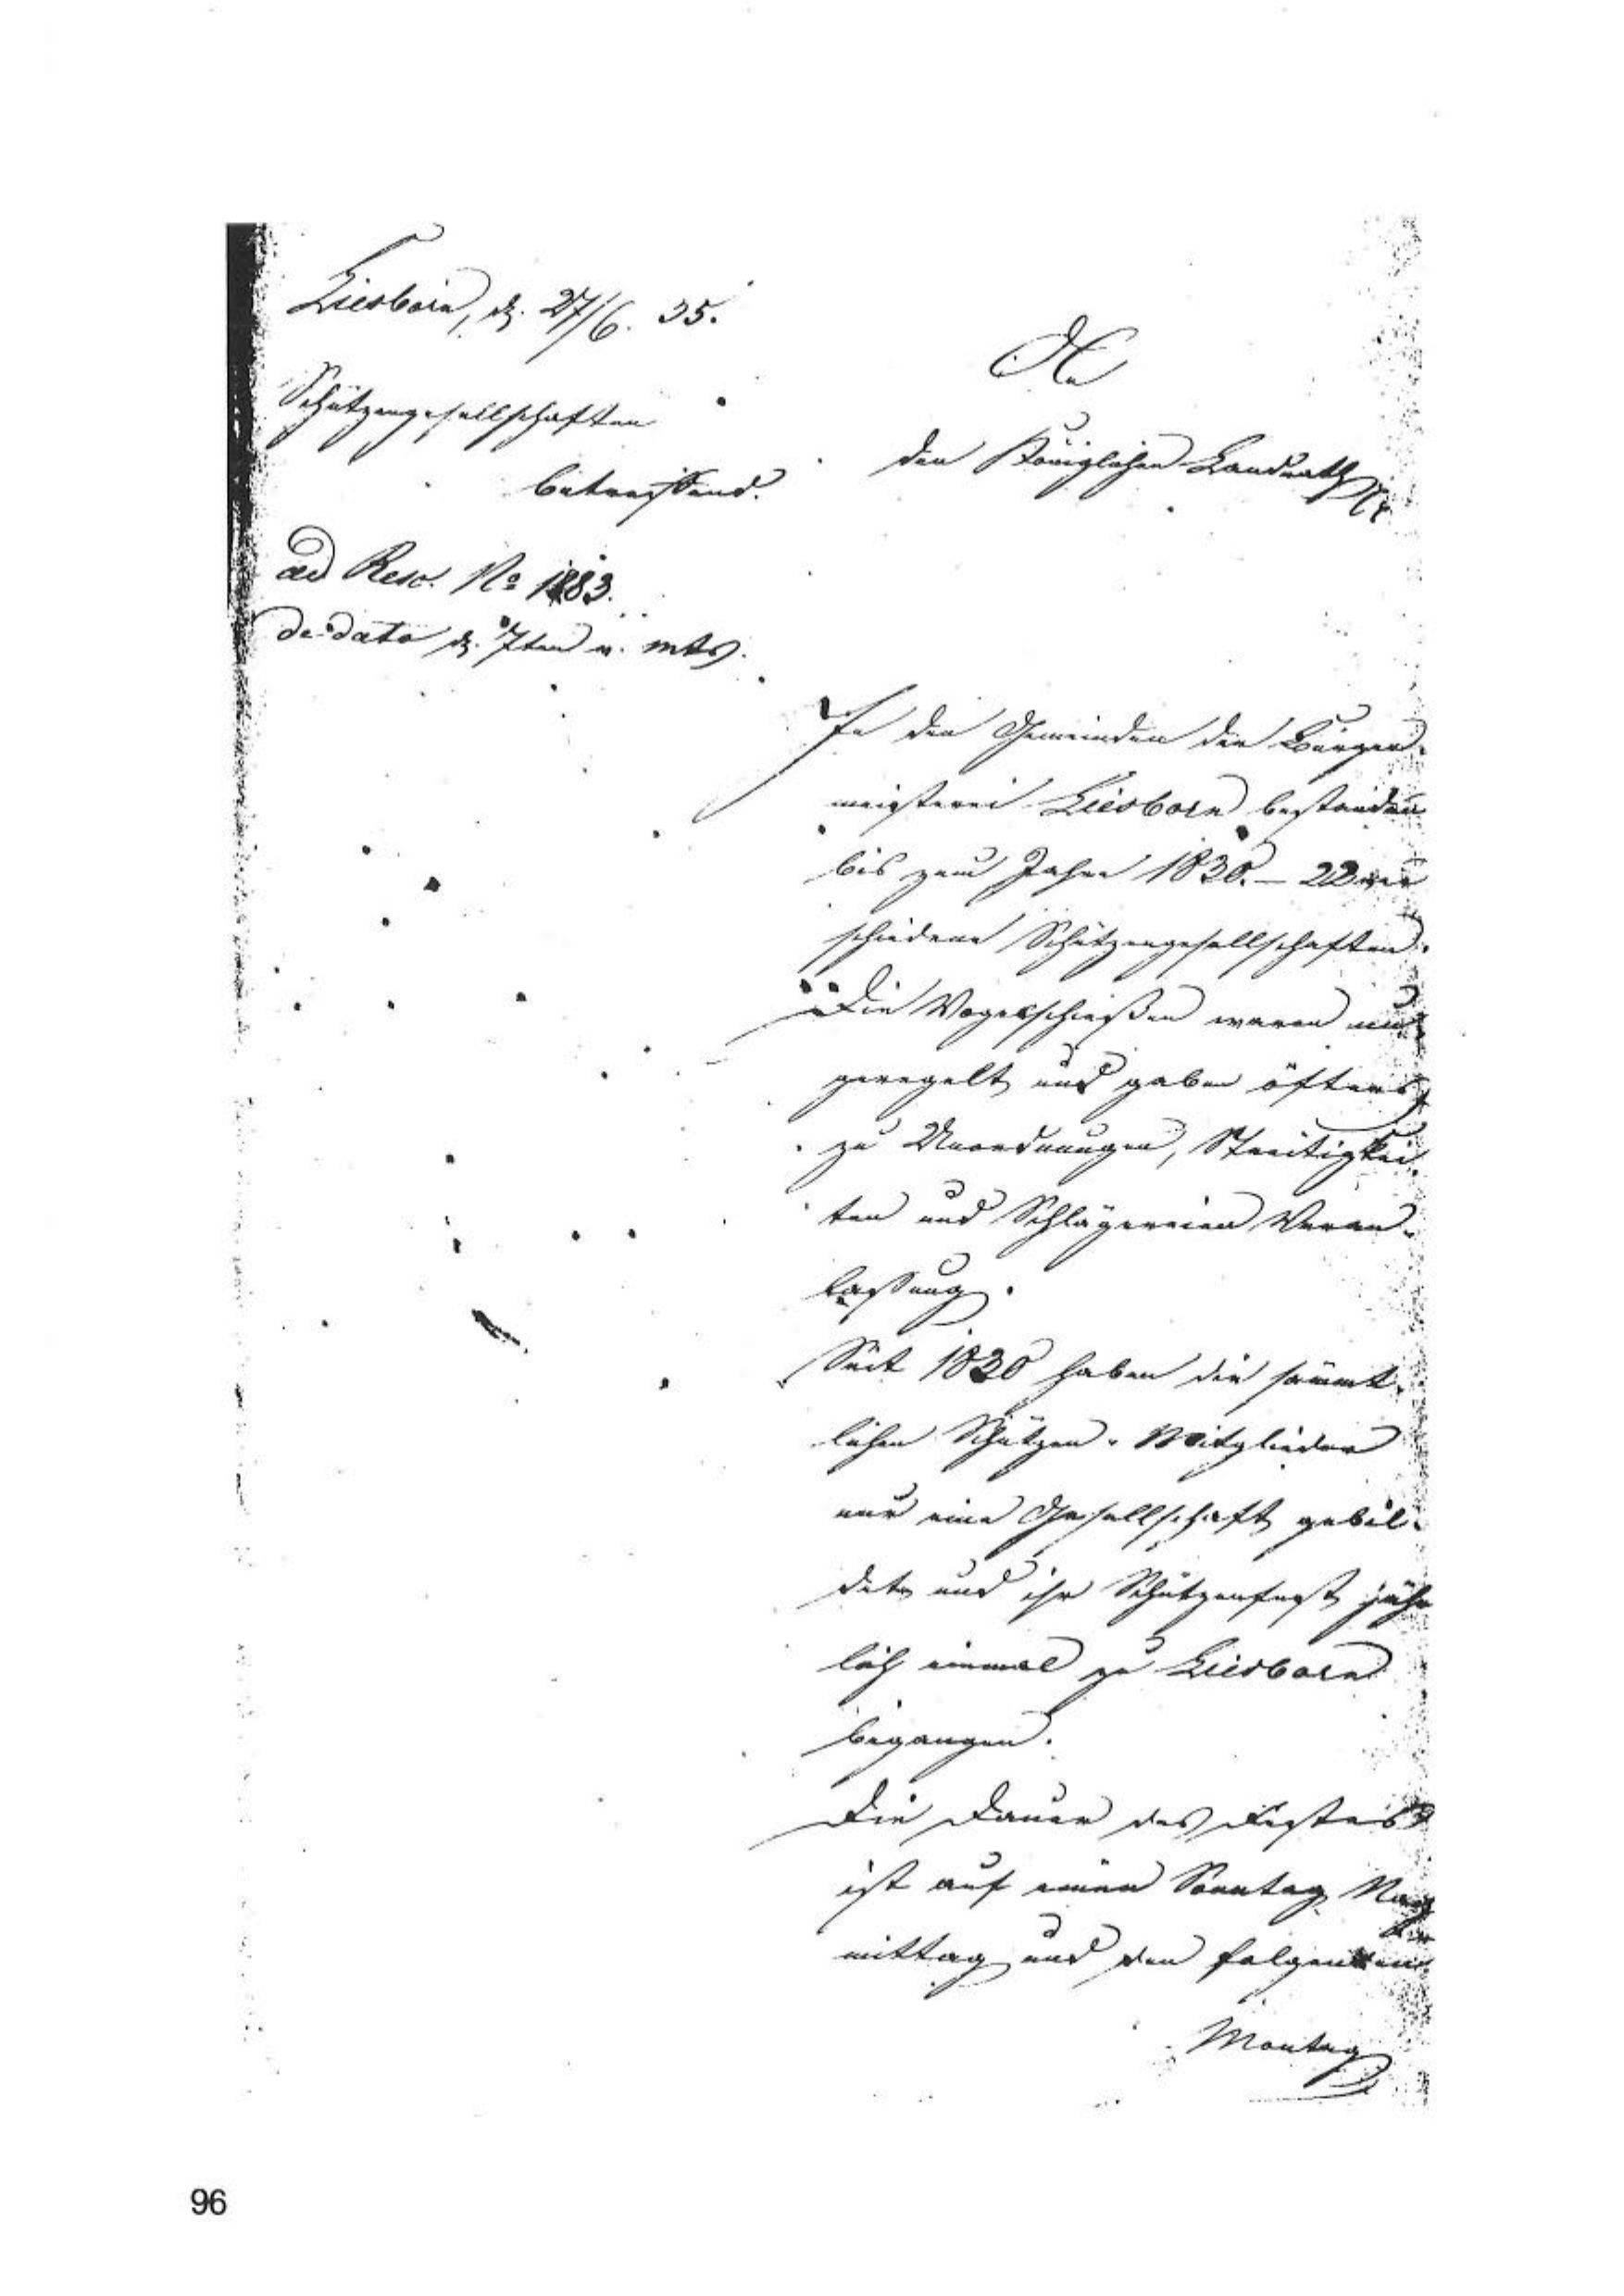 Liesborn, d. 27/6. 35.
Schützengesellschaften
betreffend.
ad Resc. No 1883.
de dato d. 7ten v. mts.
An
den Königlichen Landrath
In den Gemeinden der Bürger-
meisterei Liesborn bestanden
bis zum Jahre 1830. – 22 ver
schiedene Schützengesellschaften.
Die Vogelschießen waren un
geregelt und gaben öfters
zu Unordnungen, Streitigkei-
ten und Schlägereien Veran-
lassung.
Seit 1830 haben die sämmt-
lichen Schützen-Mitglieder
nur eine Gesellschaft gebil-
det und ihr Schützenfest jähr
lich einmal zu Liesborn
begangen.
Die Dauer des Festes
ist auf einen Sonntag Nach
mittag und den folgenden
Montag
96